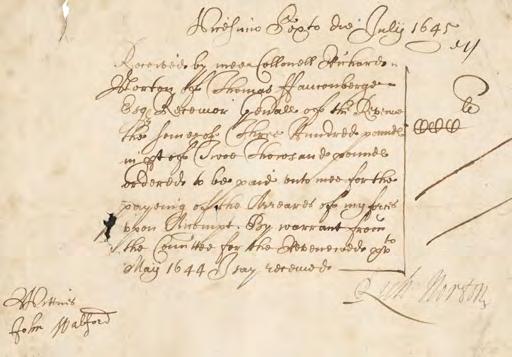 Vicesimo Sexto die July 1645
Received by mee Collonell Richard
Norton of Thomas ffauconberge
Esqr Receivor Genall of the Revenue
the some of Three Hundred pounds
in pt of Twoe Thowsand pounds
ordered to be paid unto mee for the
payeing of the Arreares of my forces
upon Accompt. By warrant from
the Comittee for the Revenewe
May 1644 I say received
Rich: Norton
Wittnis
John Walford